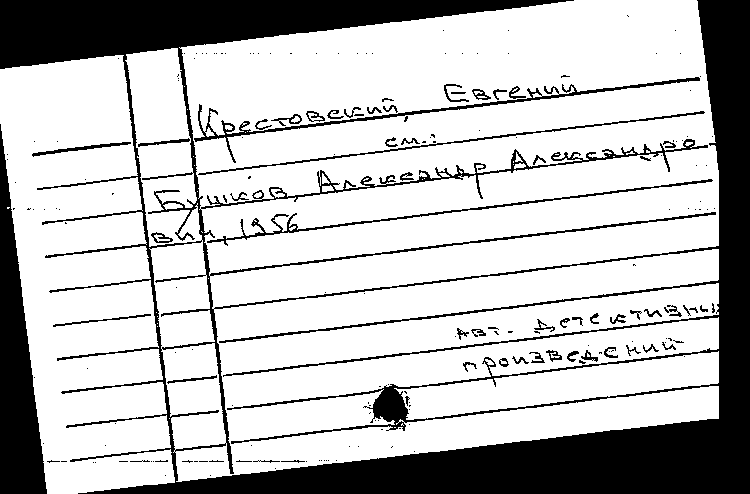 Крестовский, Евгений
см.:
Бушков, Александр Александро
вич, 1956
авт. детективных
произведений